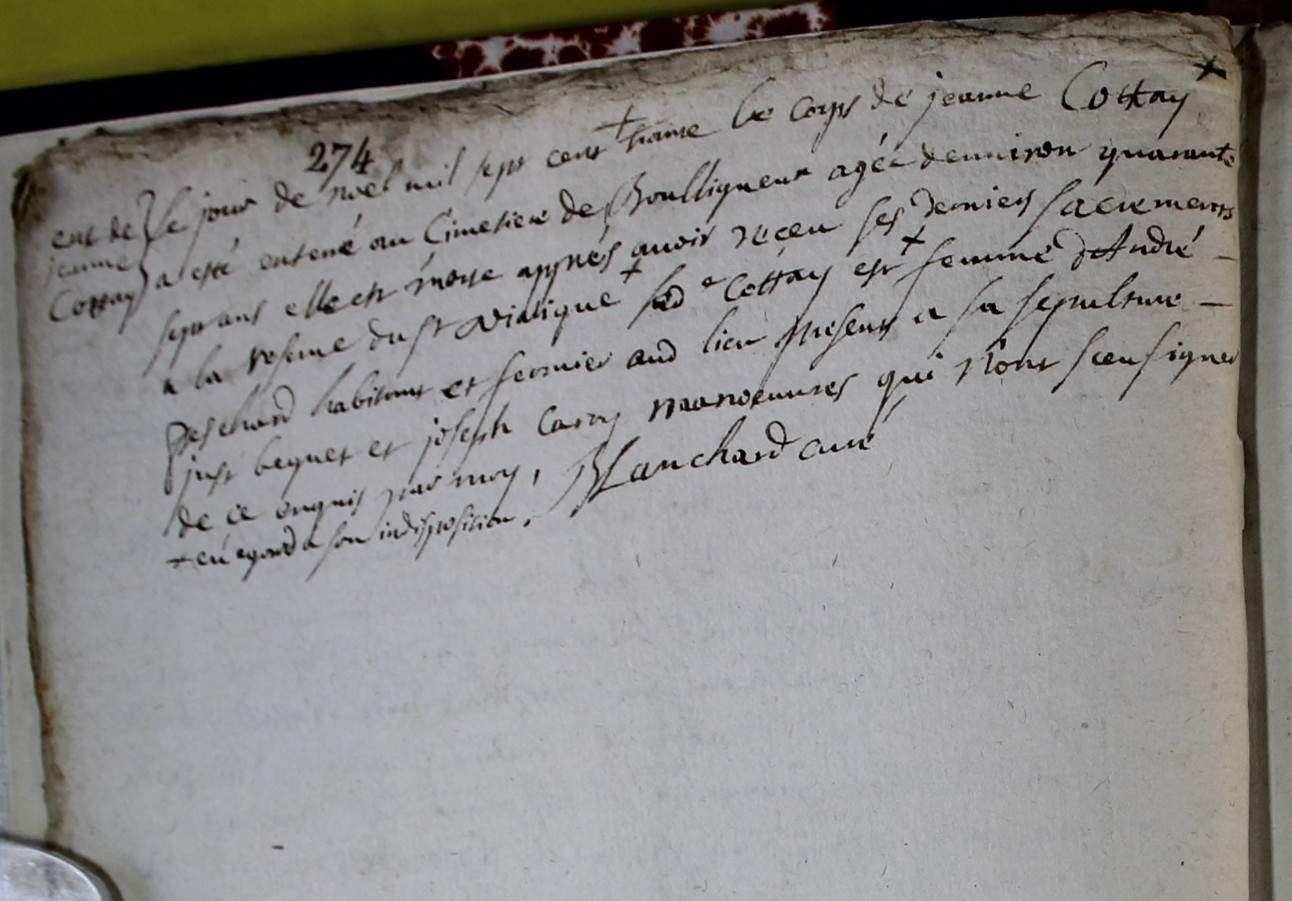 274
ent de jeanne Cottay
Le jour de noel mil sept cent trante le corps de jeanne Cottay
a esté enterré au Cimetiere de Boulligneux agée denviron quarante
sept ans elle est morte apprés avoir receu ses derniers sacrements
a la reserve du st viatique + lad e Cottay est femme d'André
Deschard habitant et fermier aud lieu presents a sa sepulture
just beguet et joseph manoeuvres qui n'ont sceu signer
de ce enquis par moy, Blanchard curé
+ eu egard a son indisposition.